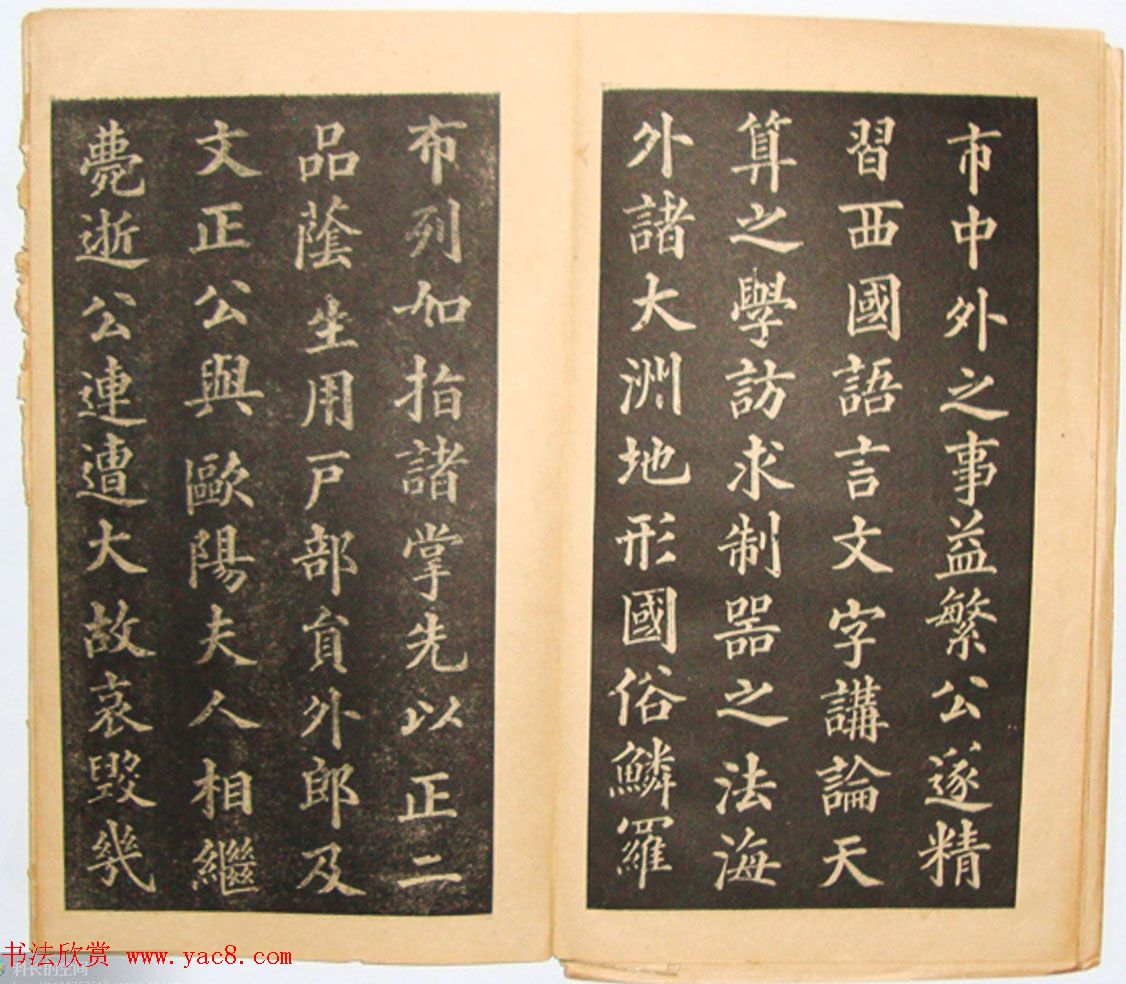 市中外之事益繁公遂精
習西國語言文字講論天
算之學訪求制器之法海
外諸大洲地形國俗鱗羅
布列如指諸掌先以正二
品蔭生用戸部員外郎及
文正公與歐陽夫人相繼
薨逝公連遭大故哀毀幾
书法欣赏 www.yac8.com
科长的空间